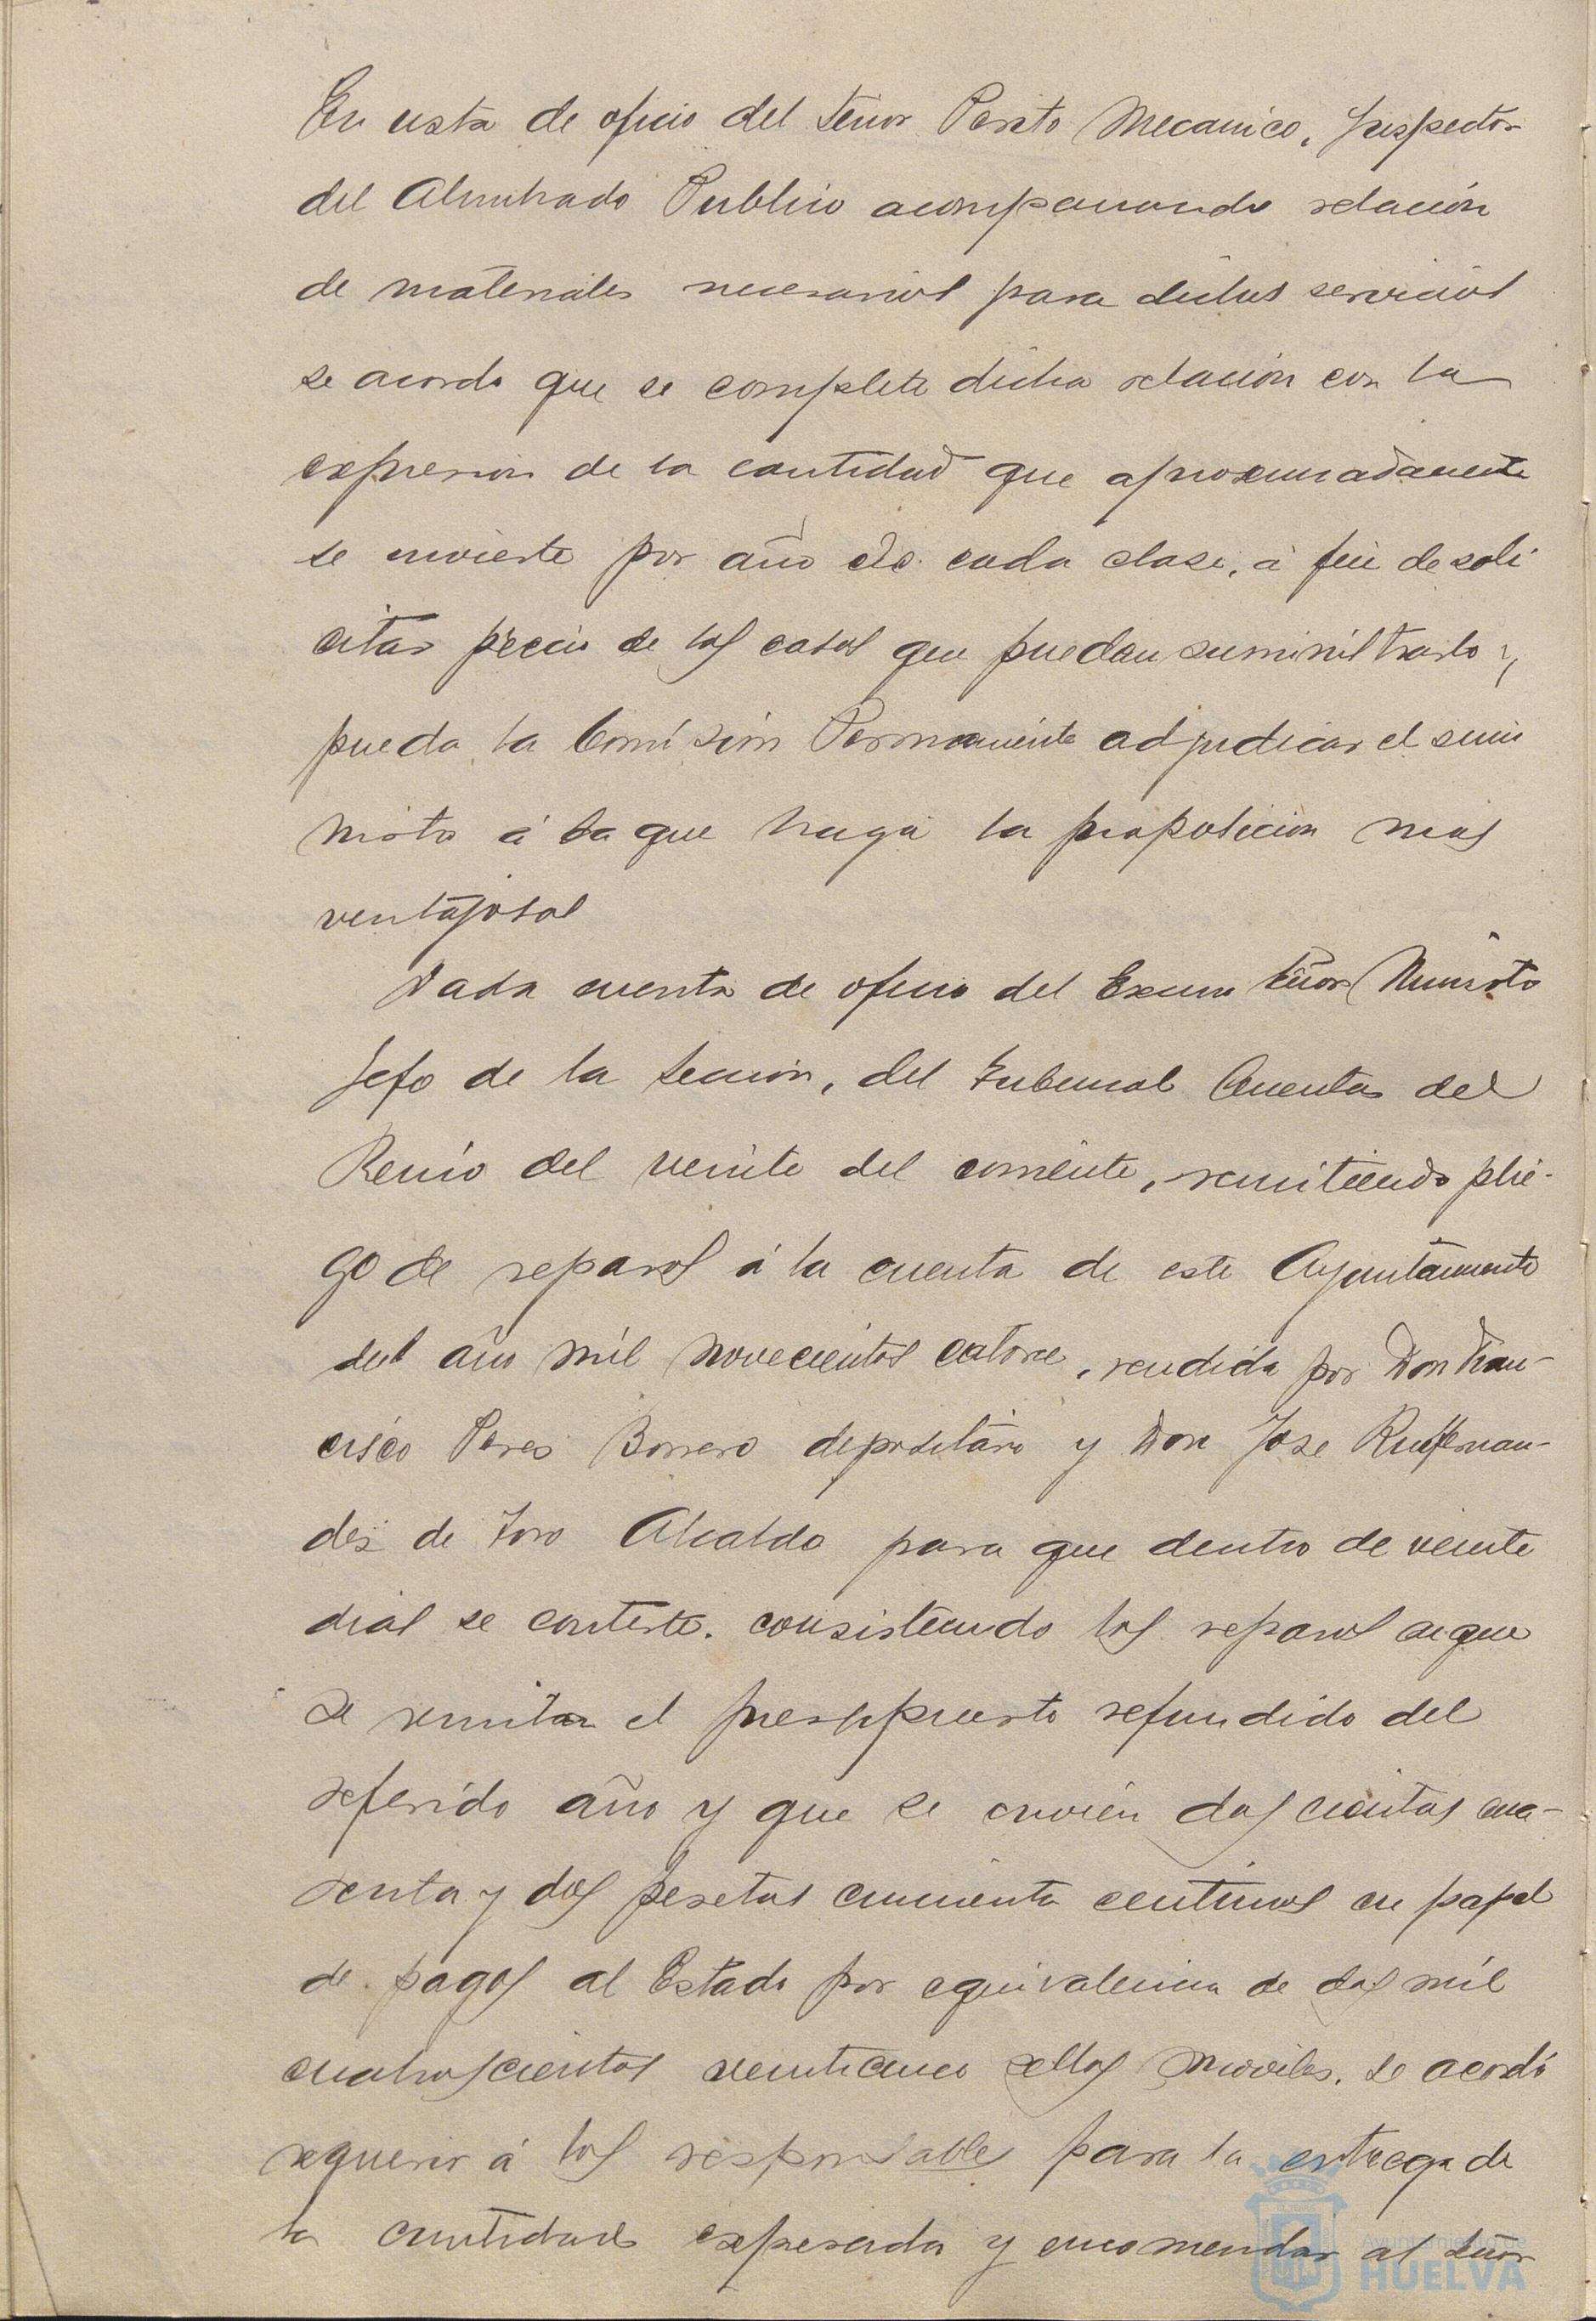 En vista de oficio del Señor Perito Mecanico, Inspector
del Alumbrado Publico acompañando relación
de materiales necesarios para dichos servicios
se acordo que se complete dicha relación con la
expresion de la cantidad que aproximadamente
se invierte por año de cada clase, á fin de soli
citar precio de los casas que puedan suministrarlo y
pueda la Comisión Permanente adjudicar el sumi
nistro á la que haga la proposicion mas
ventajosas
Dada cuenta de oficio del Excmo Señor Ministro
Jefe de la Sección, del Tribunal Cuentas del
Reino del veinte del corriente, remitiendo plie-
go de reparos á la cuenta de este Ayuntamiento
del año mil novecientos catorce, rendida por Don Fran-
cisco Perez Borrero depositario y Don Jose Ruifernan-
dez de Toro Alcalde para que dentro de veinte
dias se conteste. consistiendo los reparos en que
se remita el presupuesto refundido del
referido año y que se envien doscientas cua-
renta y dos pesetas cincuenta centimos en papel
de pagos al Estado por equivalencia de dos mil
cuatroscientos veinticinco sellos moviles. Se acordó
requerir á los responsables para la entrega de
la cantidad expresada y encomendar al Señor
Ayuntamiento de
HUELVA